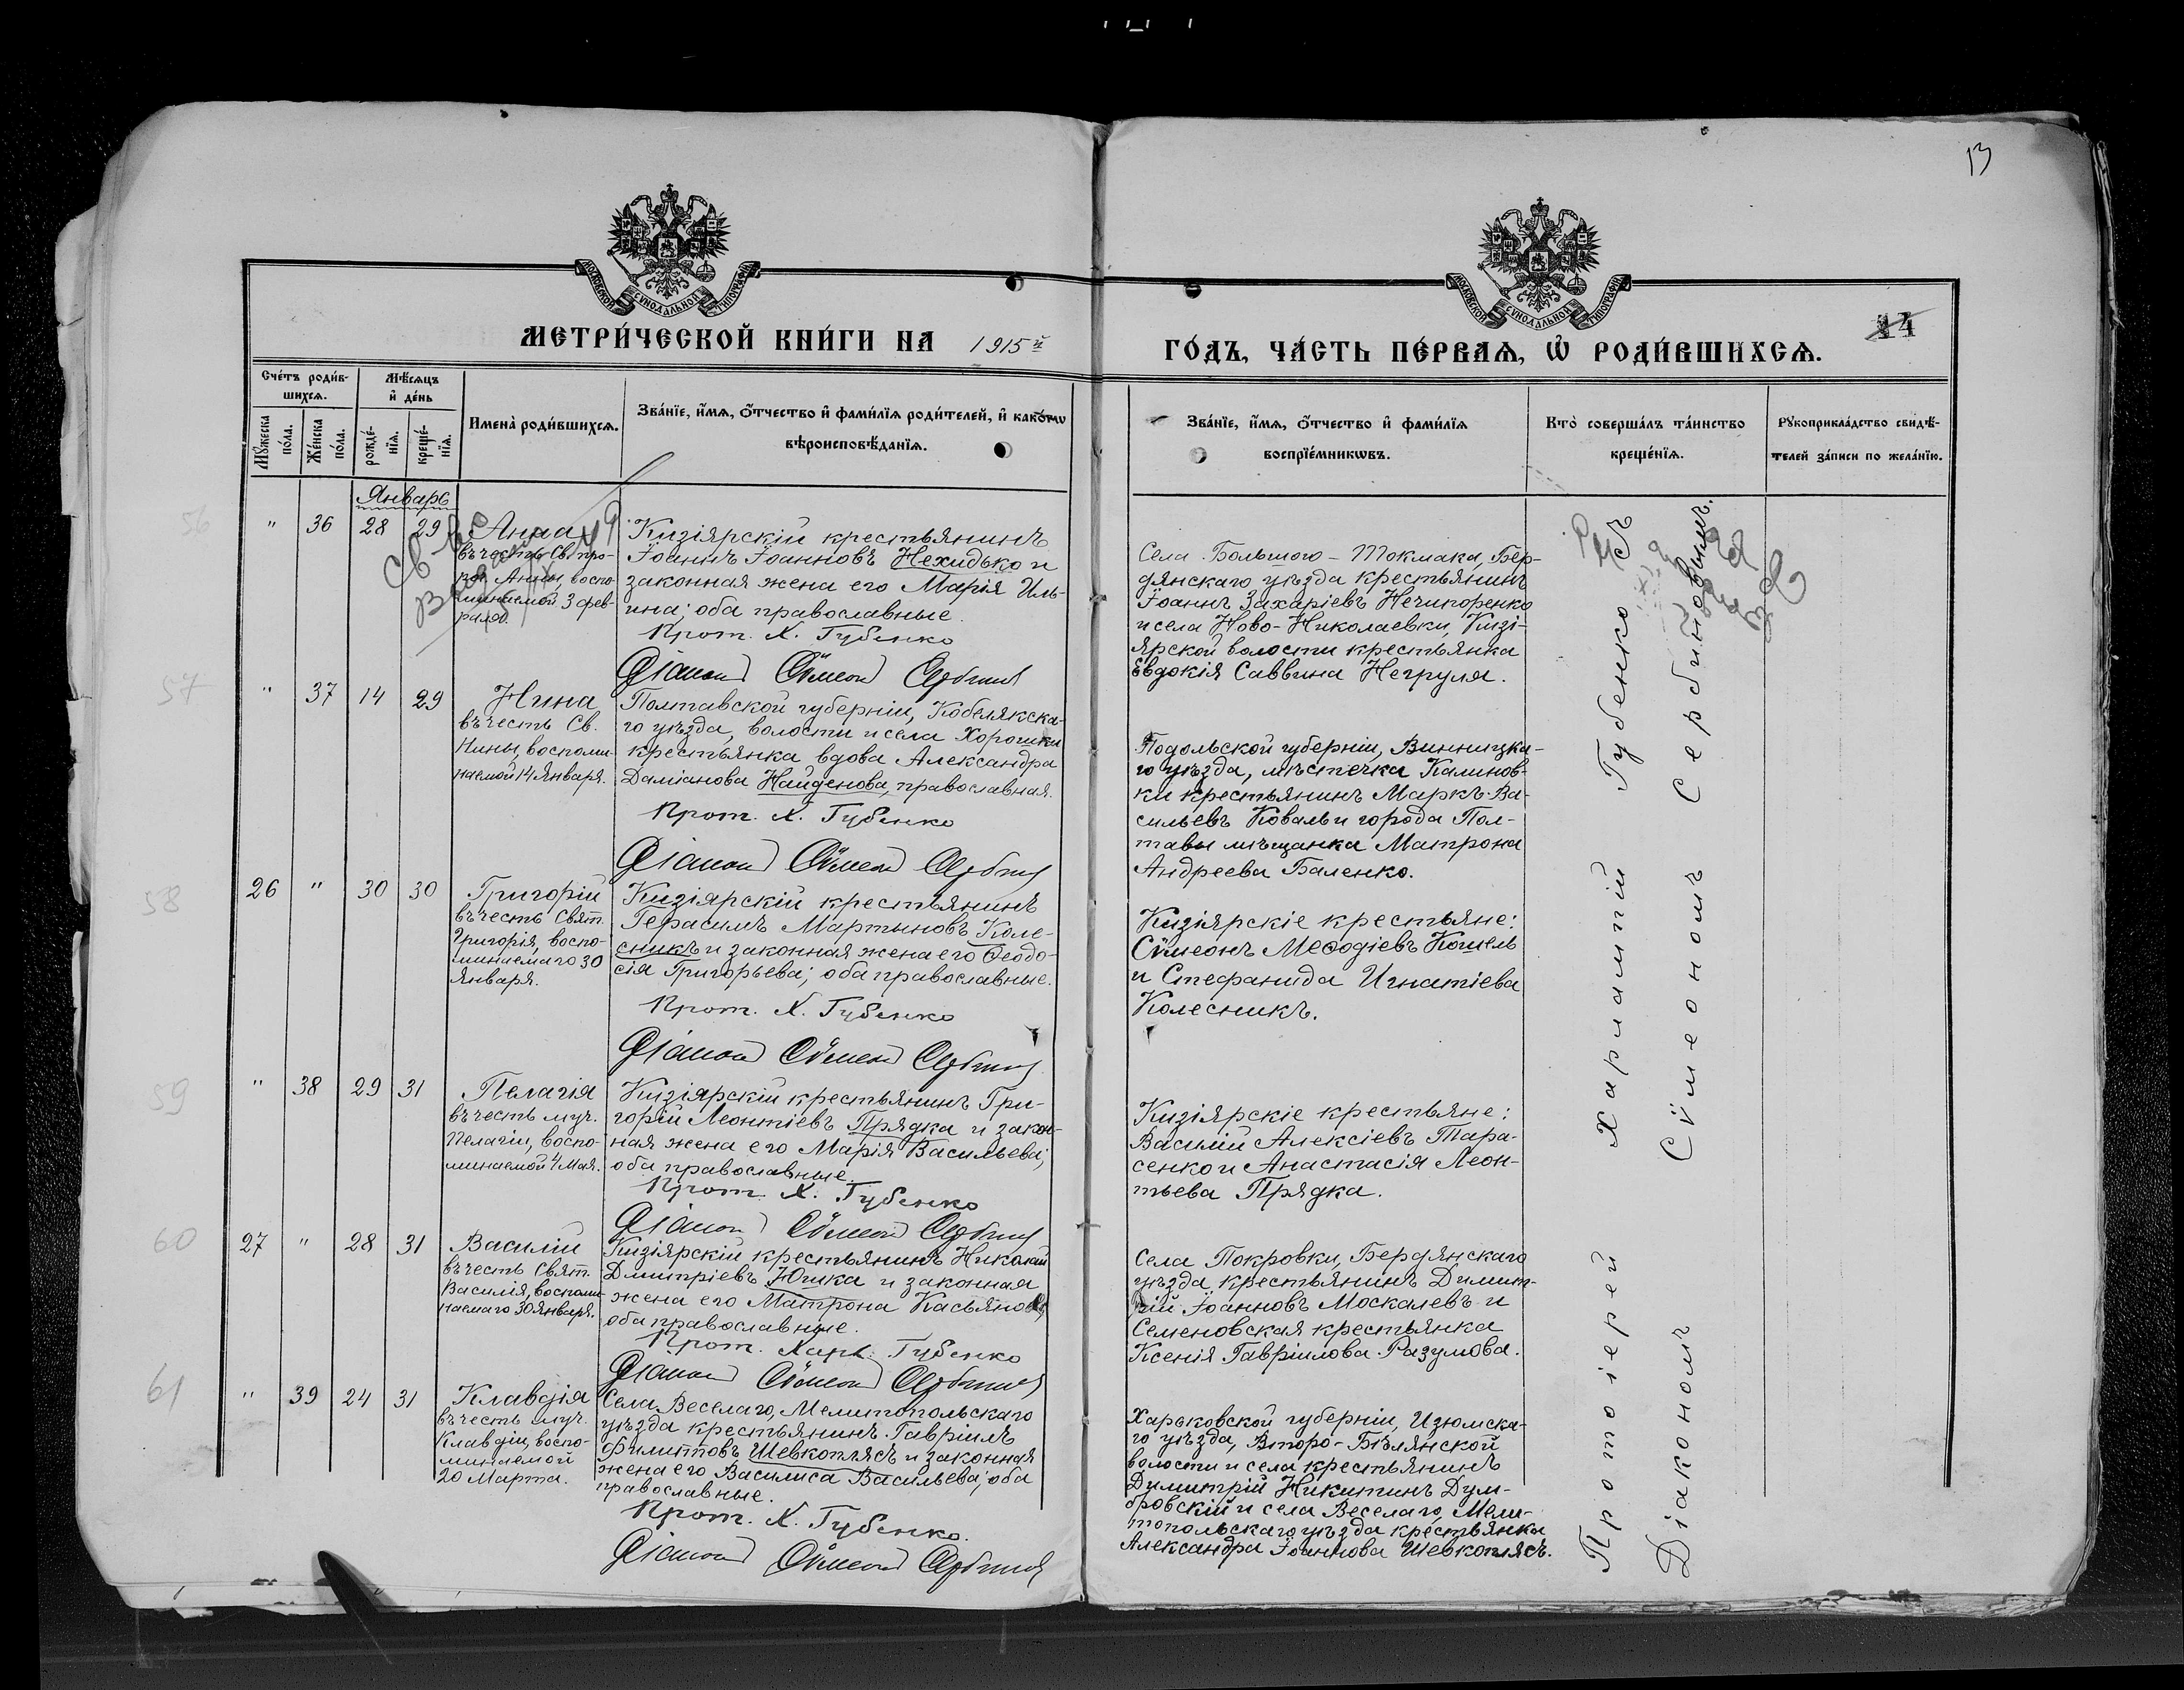 13
МОСКОВСКОЙ СѴНОДАЛЬНОЙ ТИПОГРАФІИ
МОСКОВСКОЙ СѴНОДАЛЬНОЙ ТИПОГРАФІИ
МЕТРИ́ЧЕСКОЙ КНИ́ГИ НА 1915й
ГО́ДЪ, ЧА́СТЬ ПЕ́РВАЯ, Ѡ РОДИ́ВШИХСЯ.
14
Сче́тъ роди́в-
шихся.
Мѣ́сяцъ
и҆ де́нь
Мꙋ́жеска
по́ла.
Же́нска
по́ла.
рожде́-
нїя.
креще́-
нїя.
Имена̀ роди́вшихся.
Зва́нїе, и҆́мя, ѻ҆́тчество и҆ фами́лїя роди́телей, и҆ како́гѡ
вѣроисповѣ́данїя.
Зва́нїе, и҆́мя, ѻ҆́тчество и҆ фами́лїя
воспрїе́мникѡвъ.
Кто̀ соверша́лъ та́инство
креще́нїя.
Рꙋкоприкла́дство свидѣ́-
телей за́писи по жела́нїю.
Январь
56
" 36 28 29
Анна
въ честь Св. про-
рoч. Анны, воспо-
минаемой 3 фев-
раля.
Св-во
Кизіярскій крестьянинъ
Іоаннъ Іоанновъ Нехидько и
законная жена его Марія Иль-
ина; оба православные.
Прот. Х. Губенко
Діаконъ Сѵмеонъ Сербиновъ
Села Большого-Токмака, Бер-
дянскаго уѣзда крестьянинъ
Іоаннъ Захаріевъ Нечипоренко
и села Ново-Николаевки, Кизі-
ярской волости крестьянка
Евдокія Саввина Негруля.
57
" 37 14 29
Нина
въ честь Св.
Нины, воспоми-
наемой 14 Января.
Полтавской губерніи, Кобелякска-
го уѣзда, волости и села Хорошки
крестьянка вдова Александра
Даміанова Найденова, православная.
Прот. Х. Губенко
Діаконъ Сѵмеонъ Сербиновъ
Подольской губерніи, Винницка-
го уѣзда, мѣстечка Калинов-
ки крестьянинъ Маркъ Ва-
сильевъ Коваль и города Пол-
тавы мѣщанка Матрона
Андреева Баленко.
58
26 " 30 30
Григорій
въ честь Свят.
Григорія, воспо-
минаемаго 30
Января.
Кизіярскій крестьянинъ
Герасимъ Мартыновъ Коле-
сникъ и законная жена его Ѳеодо-
сія Григорьева; оба православные.
Прот. Х. Губенко
Діаконъ Сѵмеонъ Сербиновъ
Кизіярскіе крестьяне:
Сѵмеонъ Меѳодіевъ Кошель
и Стефанида Игнатіева
Колесникъ.
59
" 38 29 31
Пелагія
въ честь муч.
Пелагіи, воспо-
минаемой 4 Мая.
Кизіярскій крестьянинъ Гри-
горій Леонтіевъ Прядка и закон-
ная жена его Марія Васильева;
оба православные.
Прот. Х. Губенко
Діаконъ Сѵмеонъ Сербиновъ
Кизіярскіе крестьяне:
Василій Алексіевъ Тара-
сенко и Анастасія Леон-
тьева Прядка.
60
27 " 28 31
Василій
въ честь Свят.
Василія, воспоми-
наемаго 30 Января.
Кизіярскій крестьянинъ Николай
Дмитріевъ Юшка и законная
жена его Матрона Касьянова;
оба православные.
Прот. Харл. Губенко
Діаконъ Сѵмеонъ Сербиновъ
Села Покровки, Бердянскаго
уѣзда крестьянинъ Димит-
рій Іоанновъ Москалевъ и
Семеновская крестьянка
Ксенія Гавріилова Разумова.
61
" 39 24 31
Клавдія
въ честь муч.
Клавдіи, воспо-
минаемой
20 Марта.
Села Веселаго, Мелитопольскаго
уѣзда крестьянинъ Гавріилъ
Филипповъ Шевкоплясъ и законная
жена его Василиса Васильева; оба
православные.
Прот. Х. Губенко.
Діаконъ Сѵмеонъ Сербиновъ
Харьковской губерніи, Изюмска-
го уѣзда, Второ-Бѣлянской
волости и села крестьянинъ
Димитрій Никитинъ Дум-
бровскій и села Веселаго, Мели-
топольскаго уѣзда крестьянка
Александра Іоаннова Шевкоплясъ.
Протоіерей Харлампій Губенко съ
Діакономъ Сѵмеономъ Сербиновымъ.